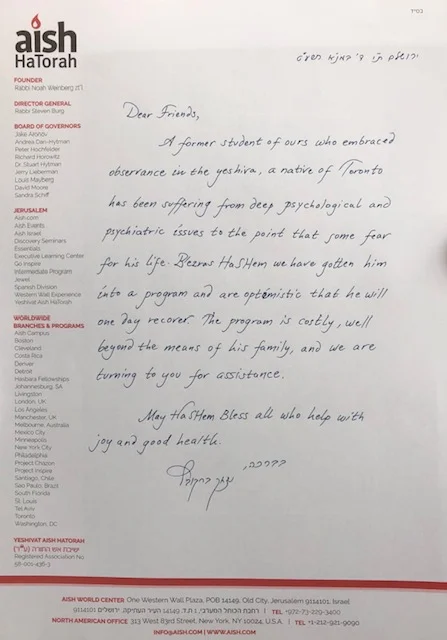 בס״ד
aish
HaTorah
ירושלים ת״ו
FOUNDER
Rabbi Noah Weinberg זצ״ל
DIRECTOR GENERAL
Rabbi Steven Burg
BOARD OF GOVERNORS
Jake Aronov
Andrea Dan-Hytman
Peter Hochfelder
Richard Horowitz
Dr. Stuart Hytman
Jerry Lieberman
Louis Mayberg
David Moore
Sandra Schiff
JERUSALEM
Aish.com
Aish Events
Aish Israel
Discovery Seminars
Essentials
Executive Learning Center
Go Inspire
Intermediate Program
Jewel
Spanish Division
Western Wall Experience
Yeshivat Aish HaTorah
WORLDWIDE
BRANCHES & PROGRAMS
Aish Campus
Boston
Cleveland
Costa Rica
Denver
Detroit
Hasbara Fellowships
Johannesburg, SA
Livingston
London, UK
Los Angeles
Manchester, UK
Melbourne, Australia
Mexico City
Minneapolis
New York City
Philadelphia
Project Chazon
Project Inspire
Santiago, Chile
Sao Paulo, Brazil
South Florida
St. Louis
Tel Aviv
Toronto
Washington, DC
YESHIVAT AISH HATORAH
ישיבת אש התורה (ע״ר)
Registered Association No.
58-001-436-3
Dear Friends,
A former student of ours who embraced
observance in the yeshiva, a native of Toronto
has been suffering from deep psychological and
psychiatric issues to the point that some fear
for his life. Bezras HaSHem we have gotten him
into a program and are optimistic that he will
one day recover. The program is costly, well
beyond the means of his family, and we are
turning to you for assistance.
May HaSHem Bless all who help with
joy and good health.
בברכה,
AISH WORLD CENTER One Western Wall Plaza, POB 14149, Old City, Jerusalem 9114101, Israel
רחבת הכותל המערבי, 1 ת.ד. 14149 העיר העתיקה, ירושלים 9114101 | TEL +972-73-229-3400
NORTH AMERICAN OFFICE 313 West 83rd Street, New York, NY 10024, U.S.A. | TEL +1-212-921-9090
INFO@AISH.COM | WWW.AISH.COM